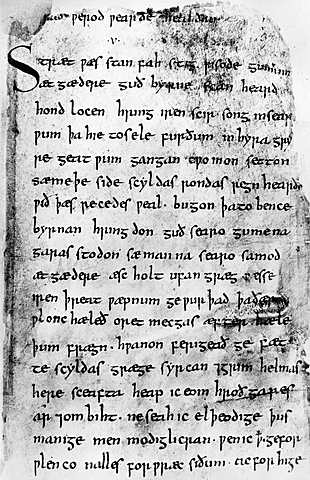 ƿerod ƿearde healdan
.v.
Stræt ƿæs stan fah stig ƿisode gumum
æt gædere guð byrne scan heard
hond locen hring iren scir song insear
ƿum þa hie tosele furðum inhyra gry
re geat ƿum gangan cƿomon setton
sæmeþe side scyldas rondas regn hearde
ƿið þæs recedes ƿeal. bugon þa to bence
byrnan hring don guð searo gumena
garas stodon sæ manna searo samod
æt gædere æsc holt ufan græg ƿæs se
iren þreat ƿæpnum ge ƿurþad þa ðær
ƿlonc hæleð oret mecgas æfter hæle
þum frægn. hƿanon ferigeað ge fæt
te scyldas græge syrcan ⁊grim helmas
here sceafta heap ic eom hroðgares
ar ⁊om biht. ne seah ic elþeodige þus
manige men modiglicran. ƿenic ꝥ gefor
ƿlenco nalles forƿræc siðum. ac forhige